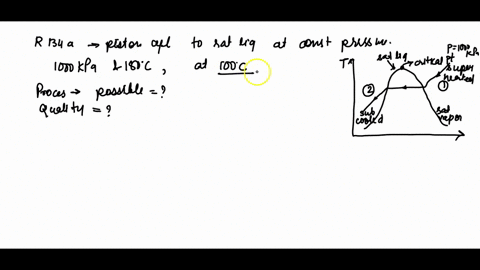 R 134a → piston cyl to sat liq at const pressure.
1000 kPa & 180°C, at 100°C.
Proces → possible = ?
Quality = ?
T
sat liq
critical pt
P=1000 kPa
super heated
①
②
sub cooled
sat vapor